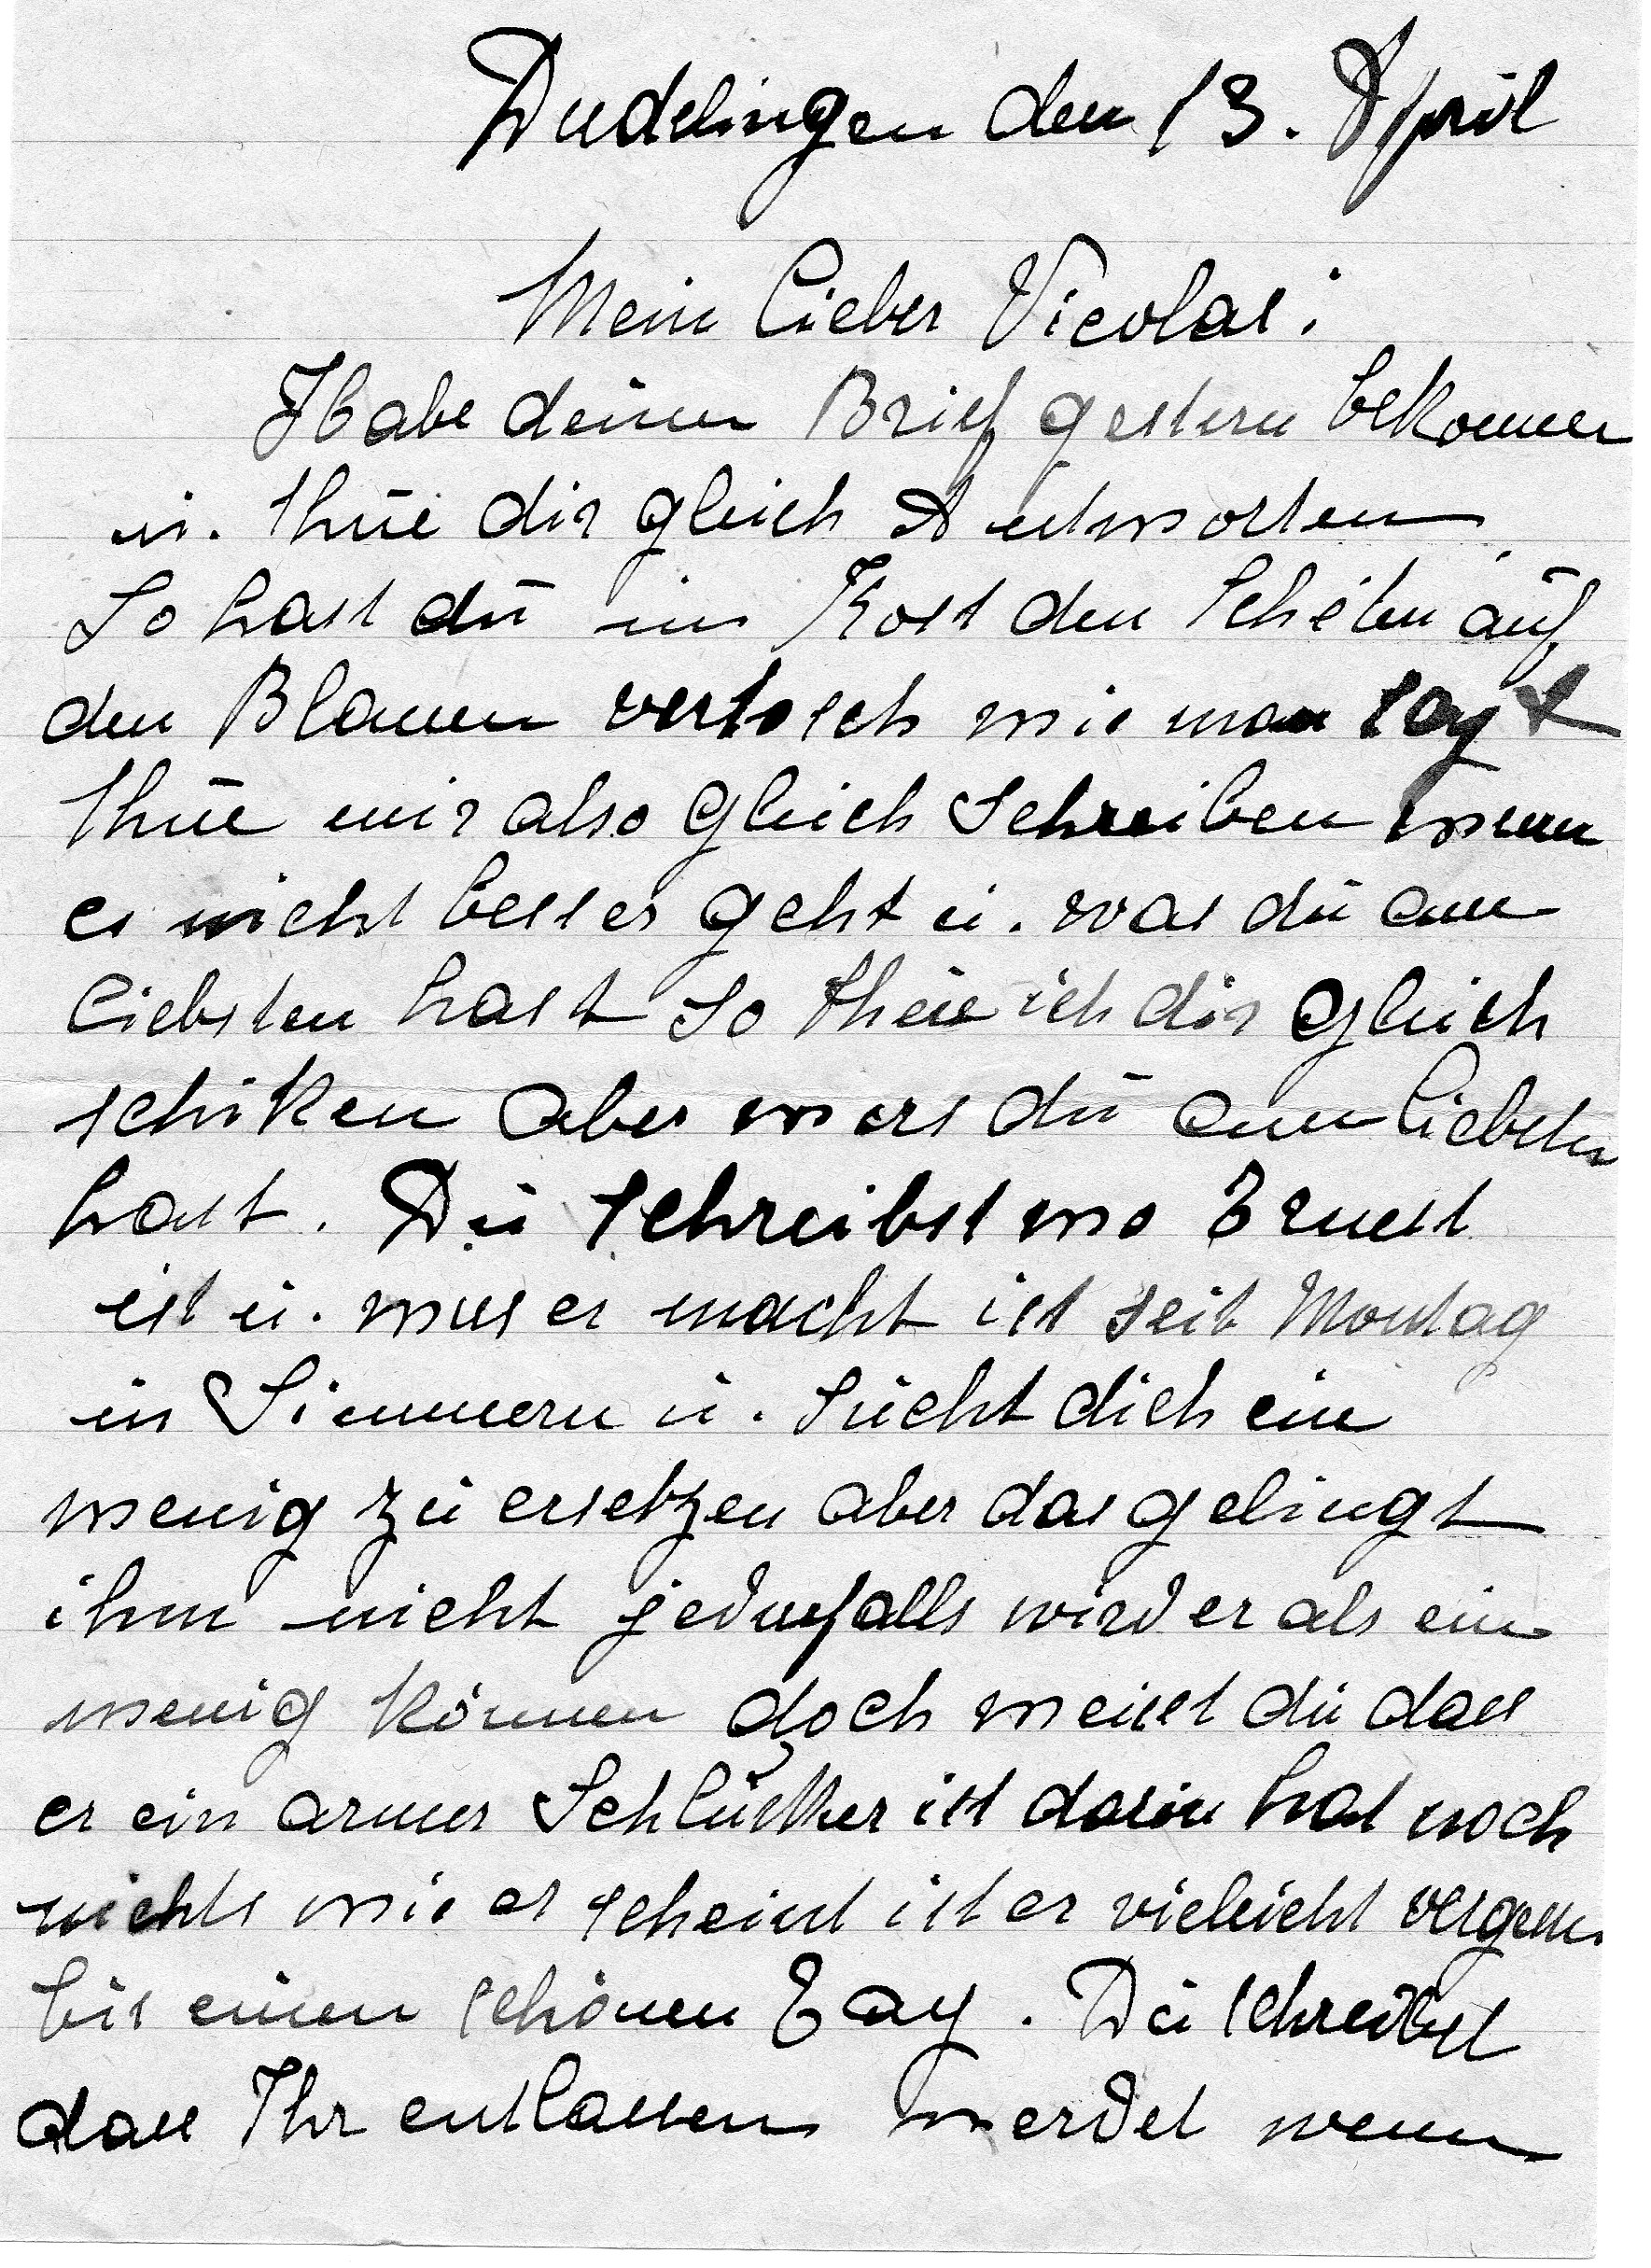 Düdelingen den 13. April
Mein lieber Nicolas:
Habe deinen Brief gestern bekommen
u. thue dir gleich Antworten
So hast du im Kost den Schelem auf
den Blauen vertosch wie man sagt
thue mir also gleich Schreiben wenn
es nicht besser geht u. was du am
liebsten hast So thue ich dir gleich
schiken aber was du am liebsten
hast. Du schreibst wo Ernest
ist u. was er macht ist seit Montag
in Simmern u. sucht dich ein
wenig zu ersetzen aber das gelingt
ihm nicht jedenfalls wird er als ein
wenig können doch weisst du dass
er ein armer Schlücker ist darin hat noch
nichts wie es scheint ist er vieleicht vergessen
bis einen schönen Tag. Du schreibst
dass Ihr entlassen werdet wenn